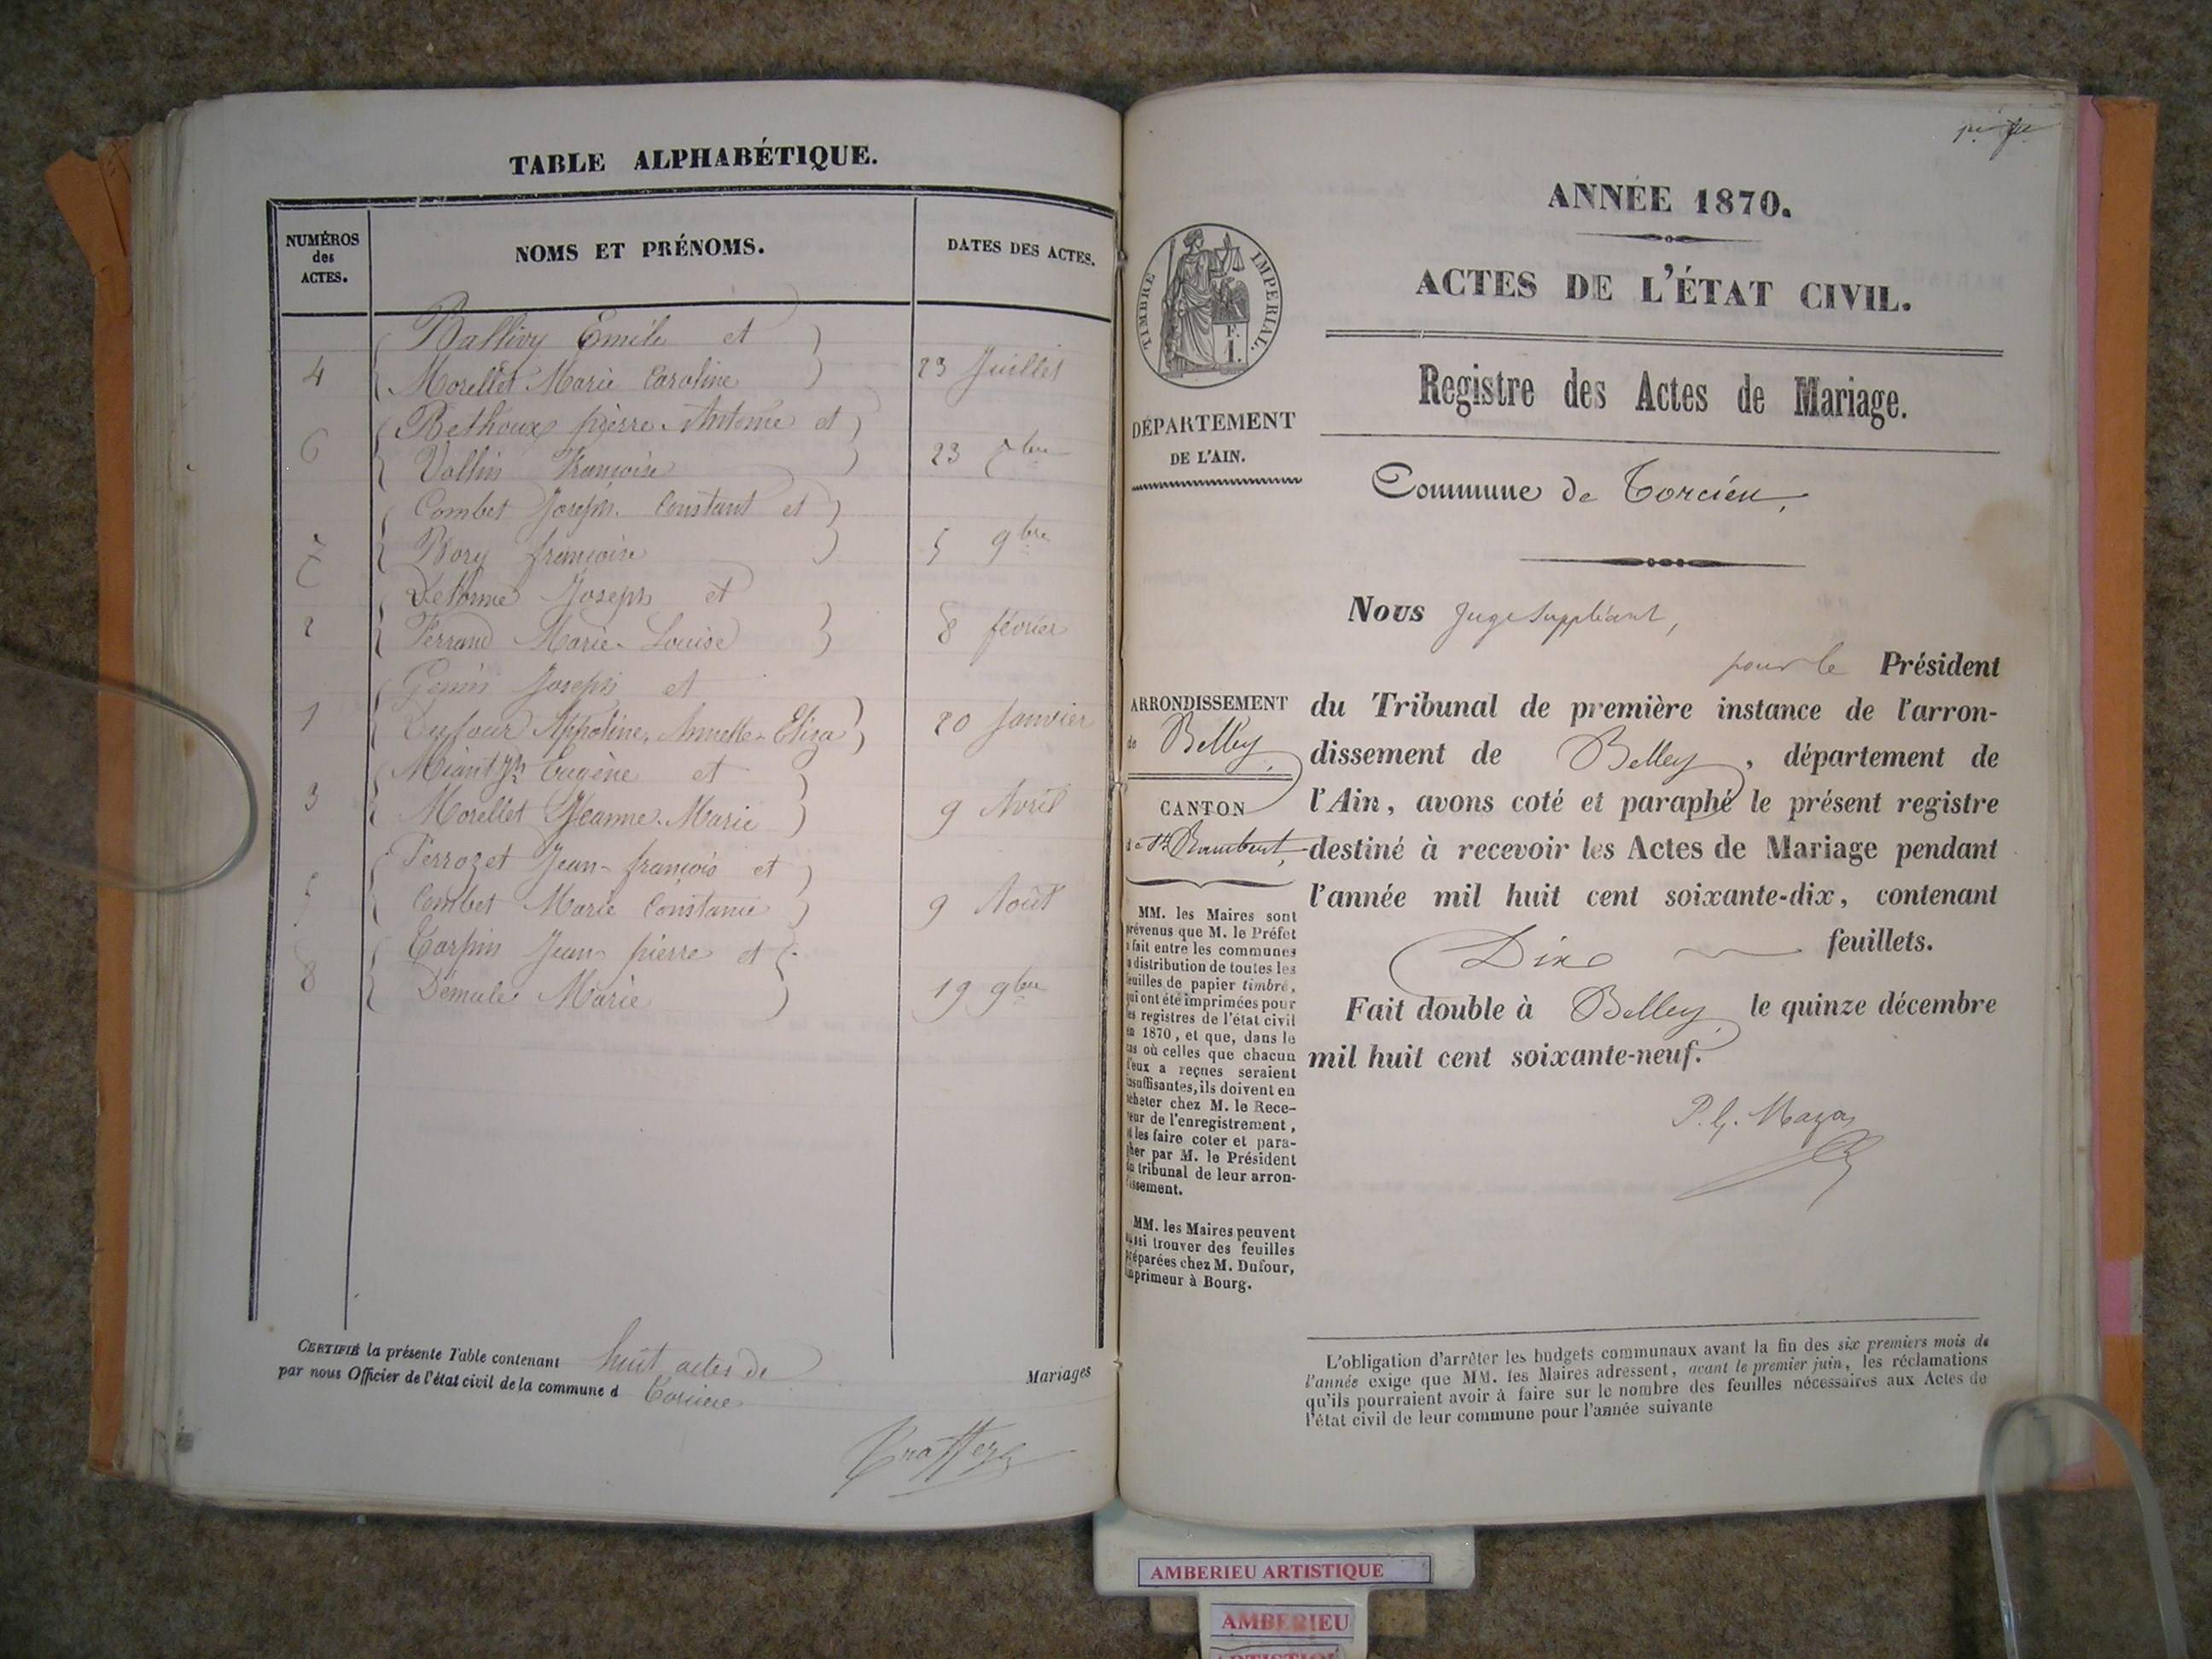 TABLE ALPHABÉTIQUE.
NUMÉROS
des
ACTES.
NOMS ET PRÉNOMS.
DATES DES ACTES.
Ballivy Emile et
4 Morellet Marie Caroline 23 Juillet
Bethoux pierre Antoine et
6 Vallin Françoise 23 7bre
Combet Joseph Constant et
7 Bory françoise 5 9bre
Delorme Joseph et
2 Ferrand Marie-Louise 8 février
Genin Joseph et
1 Dufour Appoline, Annette Eliza 20 Janvier
Miant Jh Eugène et
3 Morellet Jeanne-Marie 9 Avril
Perrozet Jean-françois et
5 Combet Marie Constance 9 Août
Carpin Jean pierre et
8 Demule Marie 19 9bre
CERTIFIÉ la présente Table contenant huit actes de Mariages
par nous Officier de l'état civil de la commune d Torcieu
ANNÉE 1870.
ACTES DE L'ÉTAT CIVIL.
TIMBRE IMPERIAL.
F.
1.
Registre des Actes de Mariage.
DÉPARTEMENT
DE L'AIN.
Commune de Torcieu,
Nous Juge Suppléant,
pour le Président
ARRONDISSEMENT
de Belley,
CANTON
de St Rambert,
du Tribunal de première instance de l'arron-
dissement de Belley, département de
l'Ain, avons coté et paraphé le présent registre
destiné à recevoir les Actes de Mariage pendant
l'année mil huit cent soixante-dix, contenant
Dix feuillets.
Fait double à Belley, le quinze décembre
mil huit cent soixante-neuf.
MM. les Maires sont
prévenus que M. le Préfet
a fait entre les communes
la distribution de toutes les
feuilles de papier timbré,
qui ont été imprimées pour
les registres de l'état civil
en 1870, et que, dans le
cas où celles que chacun
d'eux a reçues seraient
insuffisantes, ils doivent en
acheter chez M. le Rece-
veur de l'enregistrement,
et les faire coter et para-
pher par M. le Président
du tribunal de leur arron-
dissement.
MM. les Maires peuvent
aussi trouver des feuilles
préparées chez M. Dufour,
imprimeur à Bourg.
L'obligation d'arrêter les budgets communaux avant la fin des six premiers mois de
l'année exige que MM. les Maires adressent, avant le premier juin, les réclamations
qu'ils pourraient avoir à faire sur le nombre des feuilles nécessaires aux Actes de
l'état civil de leur commune pour l'année suivante
AMBERIEU ARTISTIQUE
AMBERIEU
ARTISTIQUE